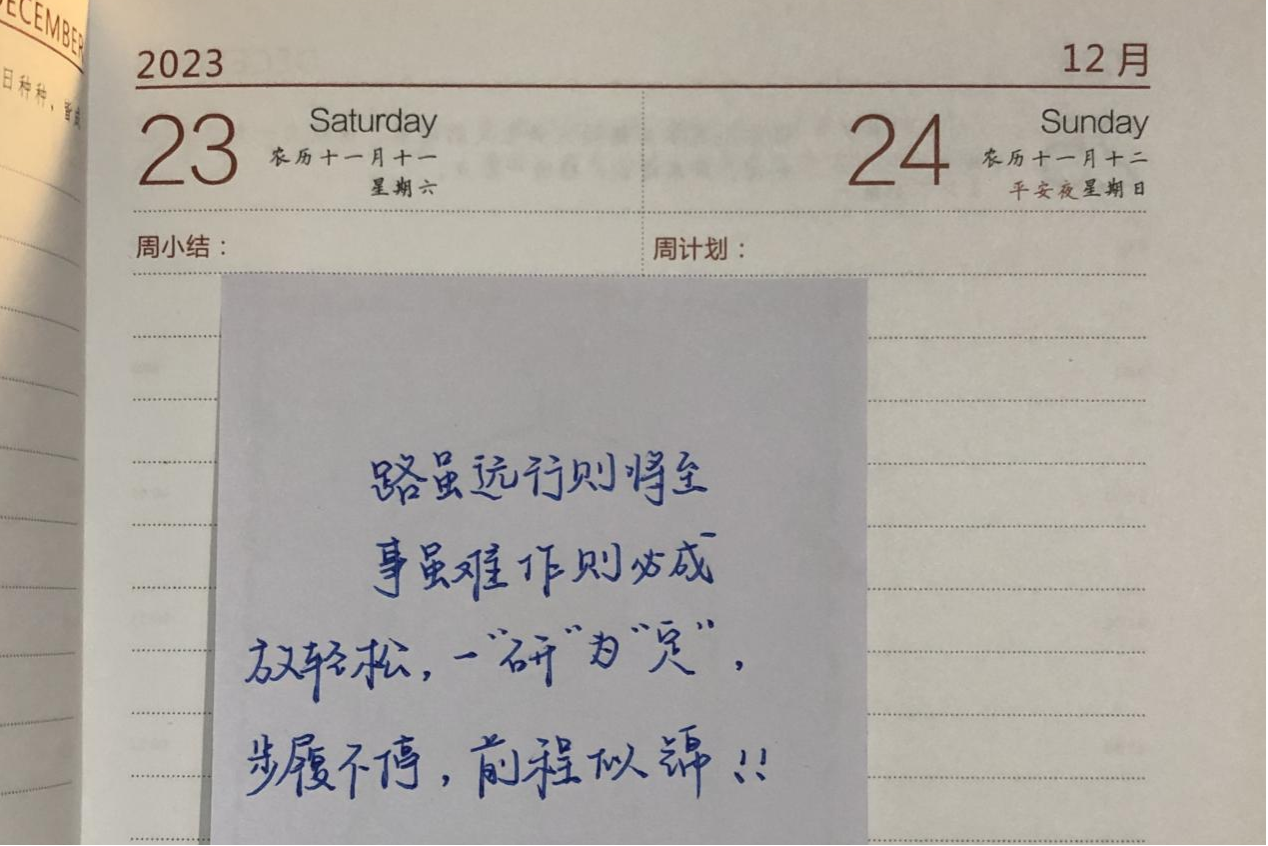 DECEMBER
日种种，皆成
2023
12月
23
Saturday
农历十一月十一
星期六
24
Sunday
农历十一月十二
平安夜星期日
周小结：
周计划：
路虽远行则将至
事虽难作则必成
放轻松，一“研”为“定”，
步履不停，前程似锦!!